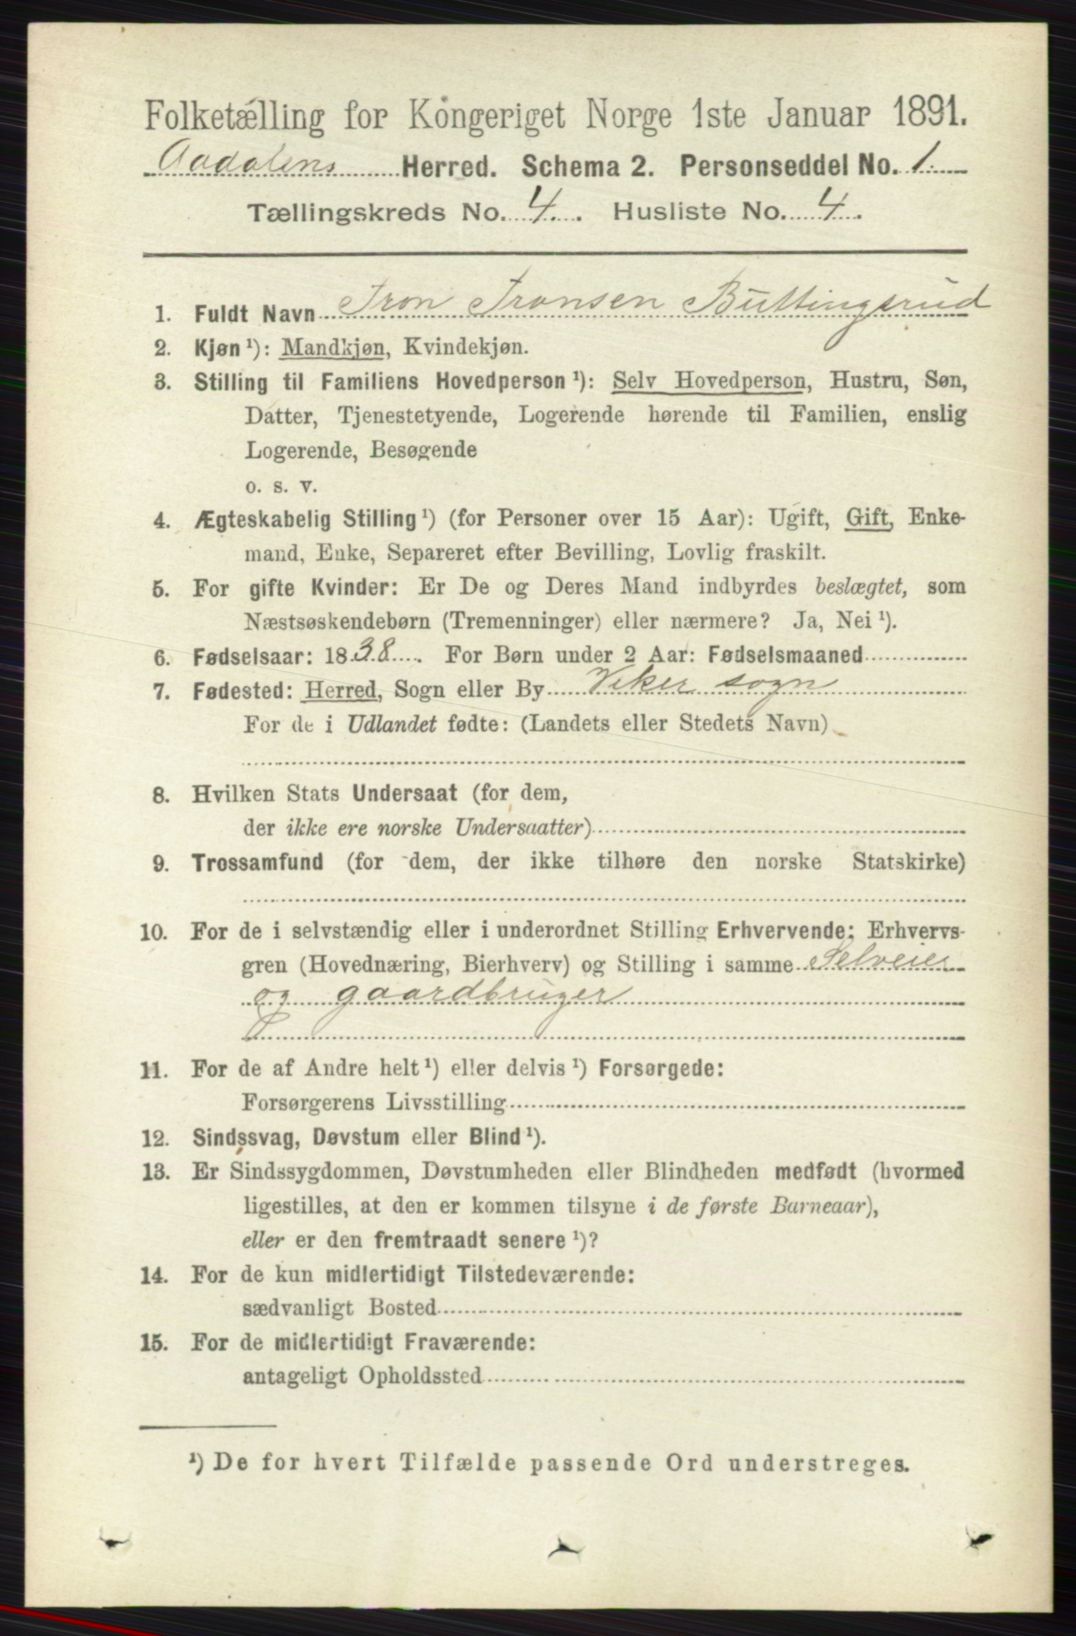 Folketælling for Kongeriget Norge 1ste Januar 1891.
Aadalens Herred. Schema 2. Personseddel No. 1.
Tællingskreds No. 4. Husliste No. 4.
1. Fuldt Navn Tron Tronsen Buttingsrud
2. Kjøn ¹): Mandkjøn, Kvindekjøn.
3. Stilling til Familiens Hovedperson ¹): Selv Hovedperson, Hustru, Søn,
Datter, Tjenestetyende, Logerende hørende til Familien, enslig
Logerende, Besøgende
o. s. v.
4. Ægteskabelig Stilling ¹) (for Personer over 15 Aar): Ugift, Gift, Enke-
mand, Enke, Separeret efter Bevilling, Lovlig fraskilt.
5. For gifte Kvinder: Er De og Deres Mand indbyrdes beslægtet, som
Næstsøskendebørn (Tremenninger) eller nærmere? Ja, Nei ¹).
6. Fødselsaar: 1838. For Børn under 2 Aar: Fødselsmaaned
7. Fødested: Herred, Sogn eller By Viker sogn
For de i Udlandet fødte: (Landets eller Stedets Navn)
8. Hvilken Stats Undersaat (for dem,
der ikke ere norske Undersaatter)
9. Trossamfund (for dem, der ikke tilhøre den norske Statskirke)
10. For de i selvstændig eller i underordnet Stilling Erhvervende: Erhvervs-
gren (Hovednæring, Bierhverv) og Stilling i samme Selveier
og gaardbruger
11. For de af Andre helt ¹) eller delvis ¹) Forsørgede:
Forsørgerens Livsstilling
12. Sindssvag, Døvstum eller Blind ¹).
13. Er Sindssygdommen, Døvstumheden eller Blindheden medfødt (hvormed
ligestilles, at den er kommen tilsyne i de første Barneaar),
eller er den fremtraadt senere ¹)?
14. For de kun midlertidigt Tilstedeværende:
sædvanligt Bosted
15. For de midlertidigt Fraværende:
antageligt Opholdssted
¹) De for hvert Tilfælde passende Ord understreges.